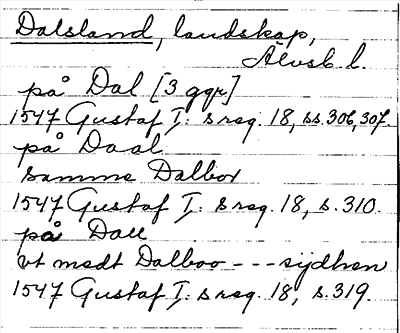 Dalsland, landskap,
Älvsb. l.
på Dal [3 ggr]
1547 Gustaf I: s reg. 18, ss. 306, 307.
på Daal
samme Dalbor
1547 Gustaf I: s reg. 18, s. 310.
på Dall
vt medt Dalboo --- sydhen
1547 Gustaf I: s reg. 18, s. 319.